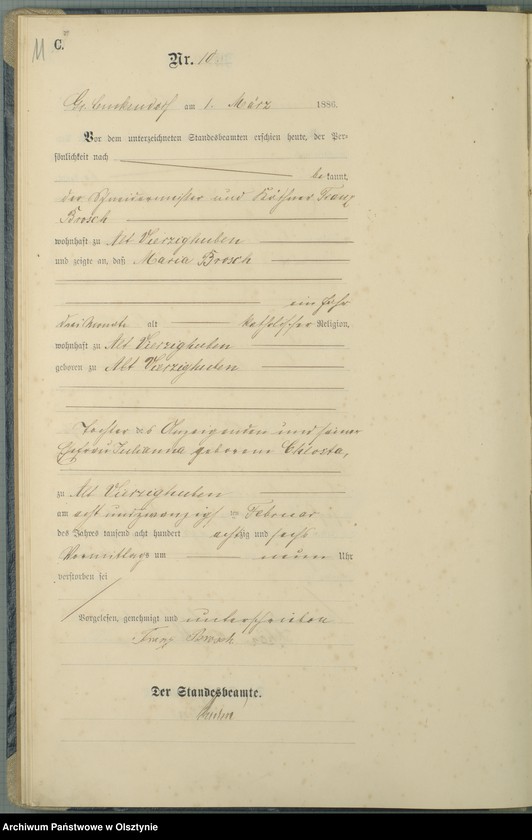 11
C.
Nr. 10
Gr. am 1. März 1886.
Vor dem unterzeichneten Standesbeamten erschien heute, der Per-
sönlichkeit nach
be kannt,
der und Käthner Franz
Brosch
wohnhaft zu Alt Vierzighuben
und zeigte an, daß Maria Brosch
ein Jahr
drei Monate alt katholischer Religion,
wohnhaft zu Alt Vierzighuben
geboren zu Alt Vierzighuben
Tochter des Anzeigenden und seiner
Ehefrau Julianna geborene Chlosta,
zu Alt Vierzighuben
am acht und zwanzigsten Februar
des Jahres tausend acht hundert achtzig und sechs
Vormittags um neun Uhr
verstorben sei
Vorgelesen, genehmigt und unterschrieben
Franz Brosch
Der Standesbeamte.
Archiwum Państwowe w Olsztynie